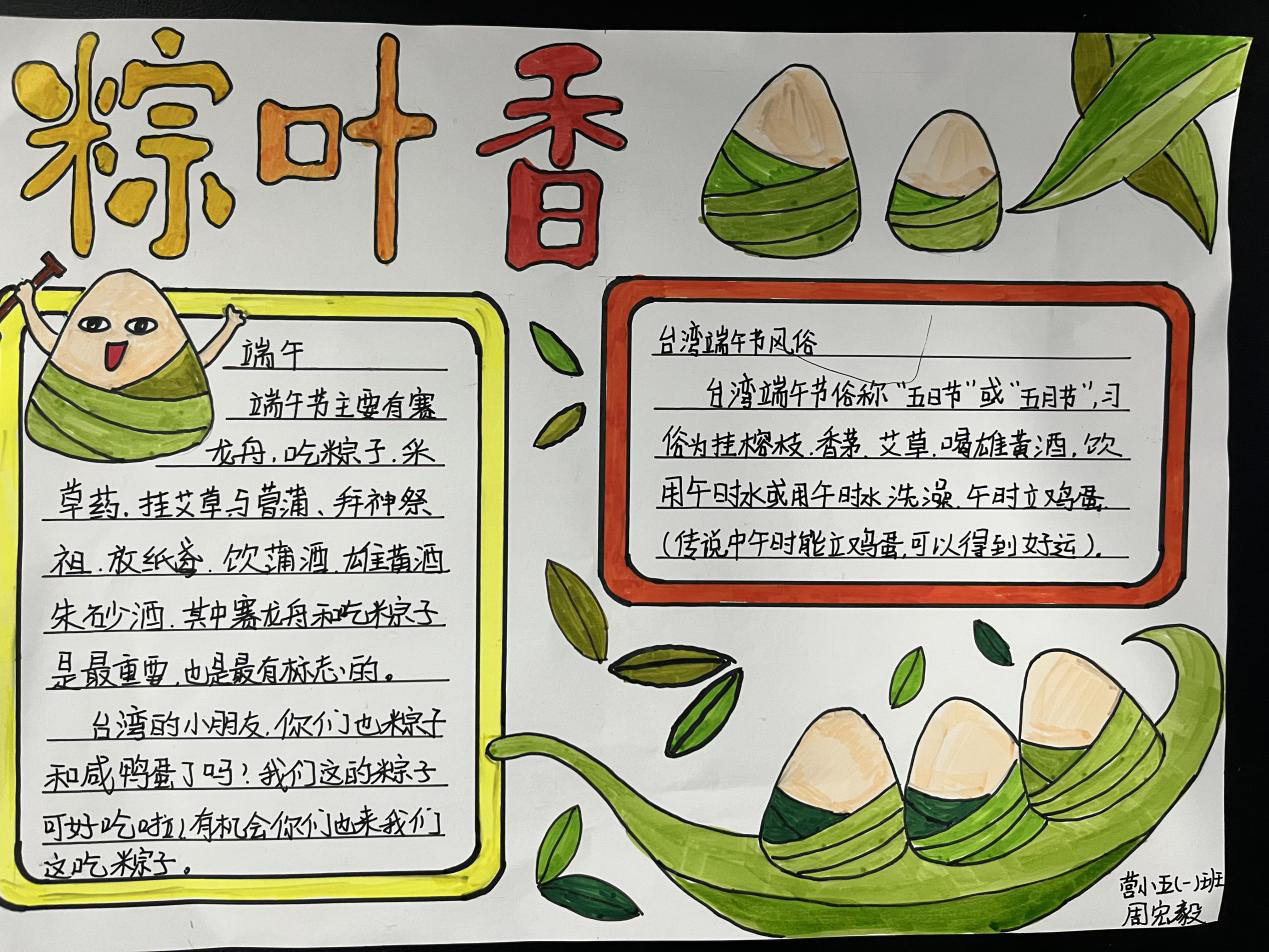 粽叶香
端午
端午节主要有赛
龙舟,吃粽子,采
草药,挂艾草与菖蒲、拜神祭
祖,放纸鸢,饮蒲酒,雄黄酒
朱砂酒,其中赛龙舟和吃粽子
是最重要,也是最有标志的。
台湾的小朋友,你们也粽子
和咸鸭蛋了吗?我们这的粽子
可好吃啦!有机会你们也来我们
这吃粽子。
台湾端午节风俗
台湾端午节俗称“五日节”或“五月节”,习
俗为挂榕枝,香茅,艾草,喝雄黄酒,饮
用午时水或用午时水洗澡,午时立鸡蛋
(传说中午时能立鸡蛋,可以得到好运)。
营小五(一)班
周宏毅